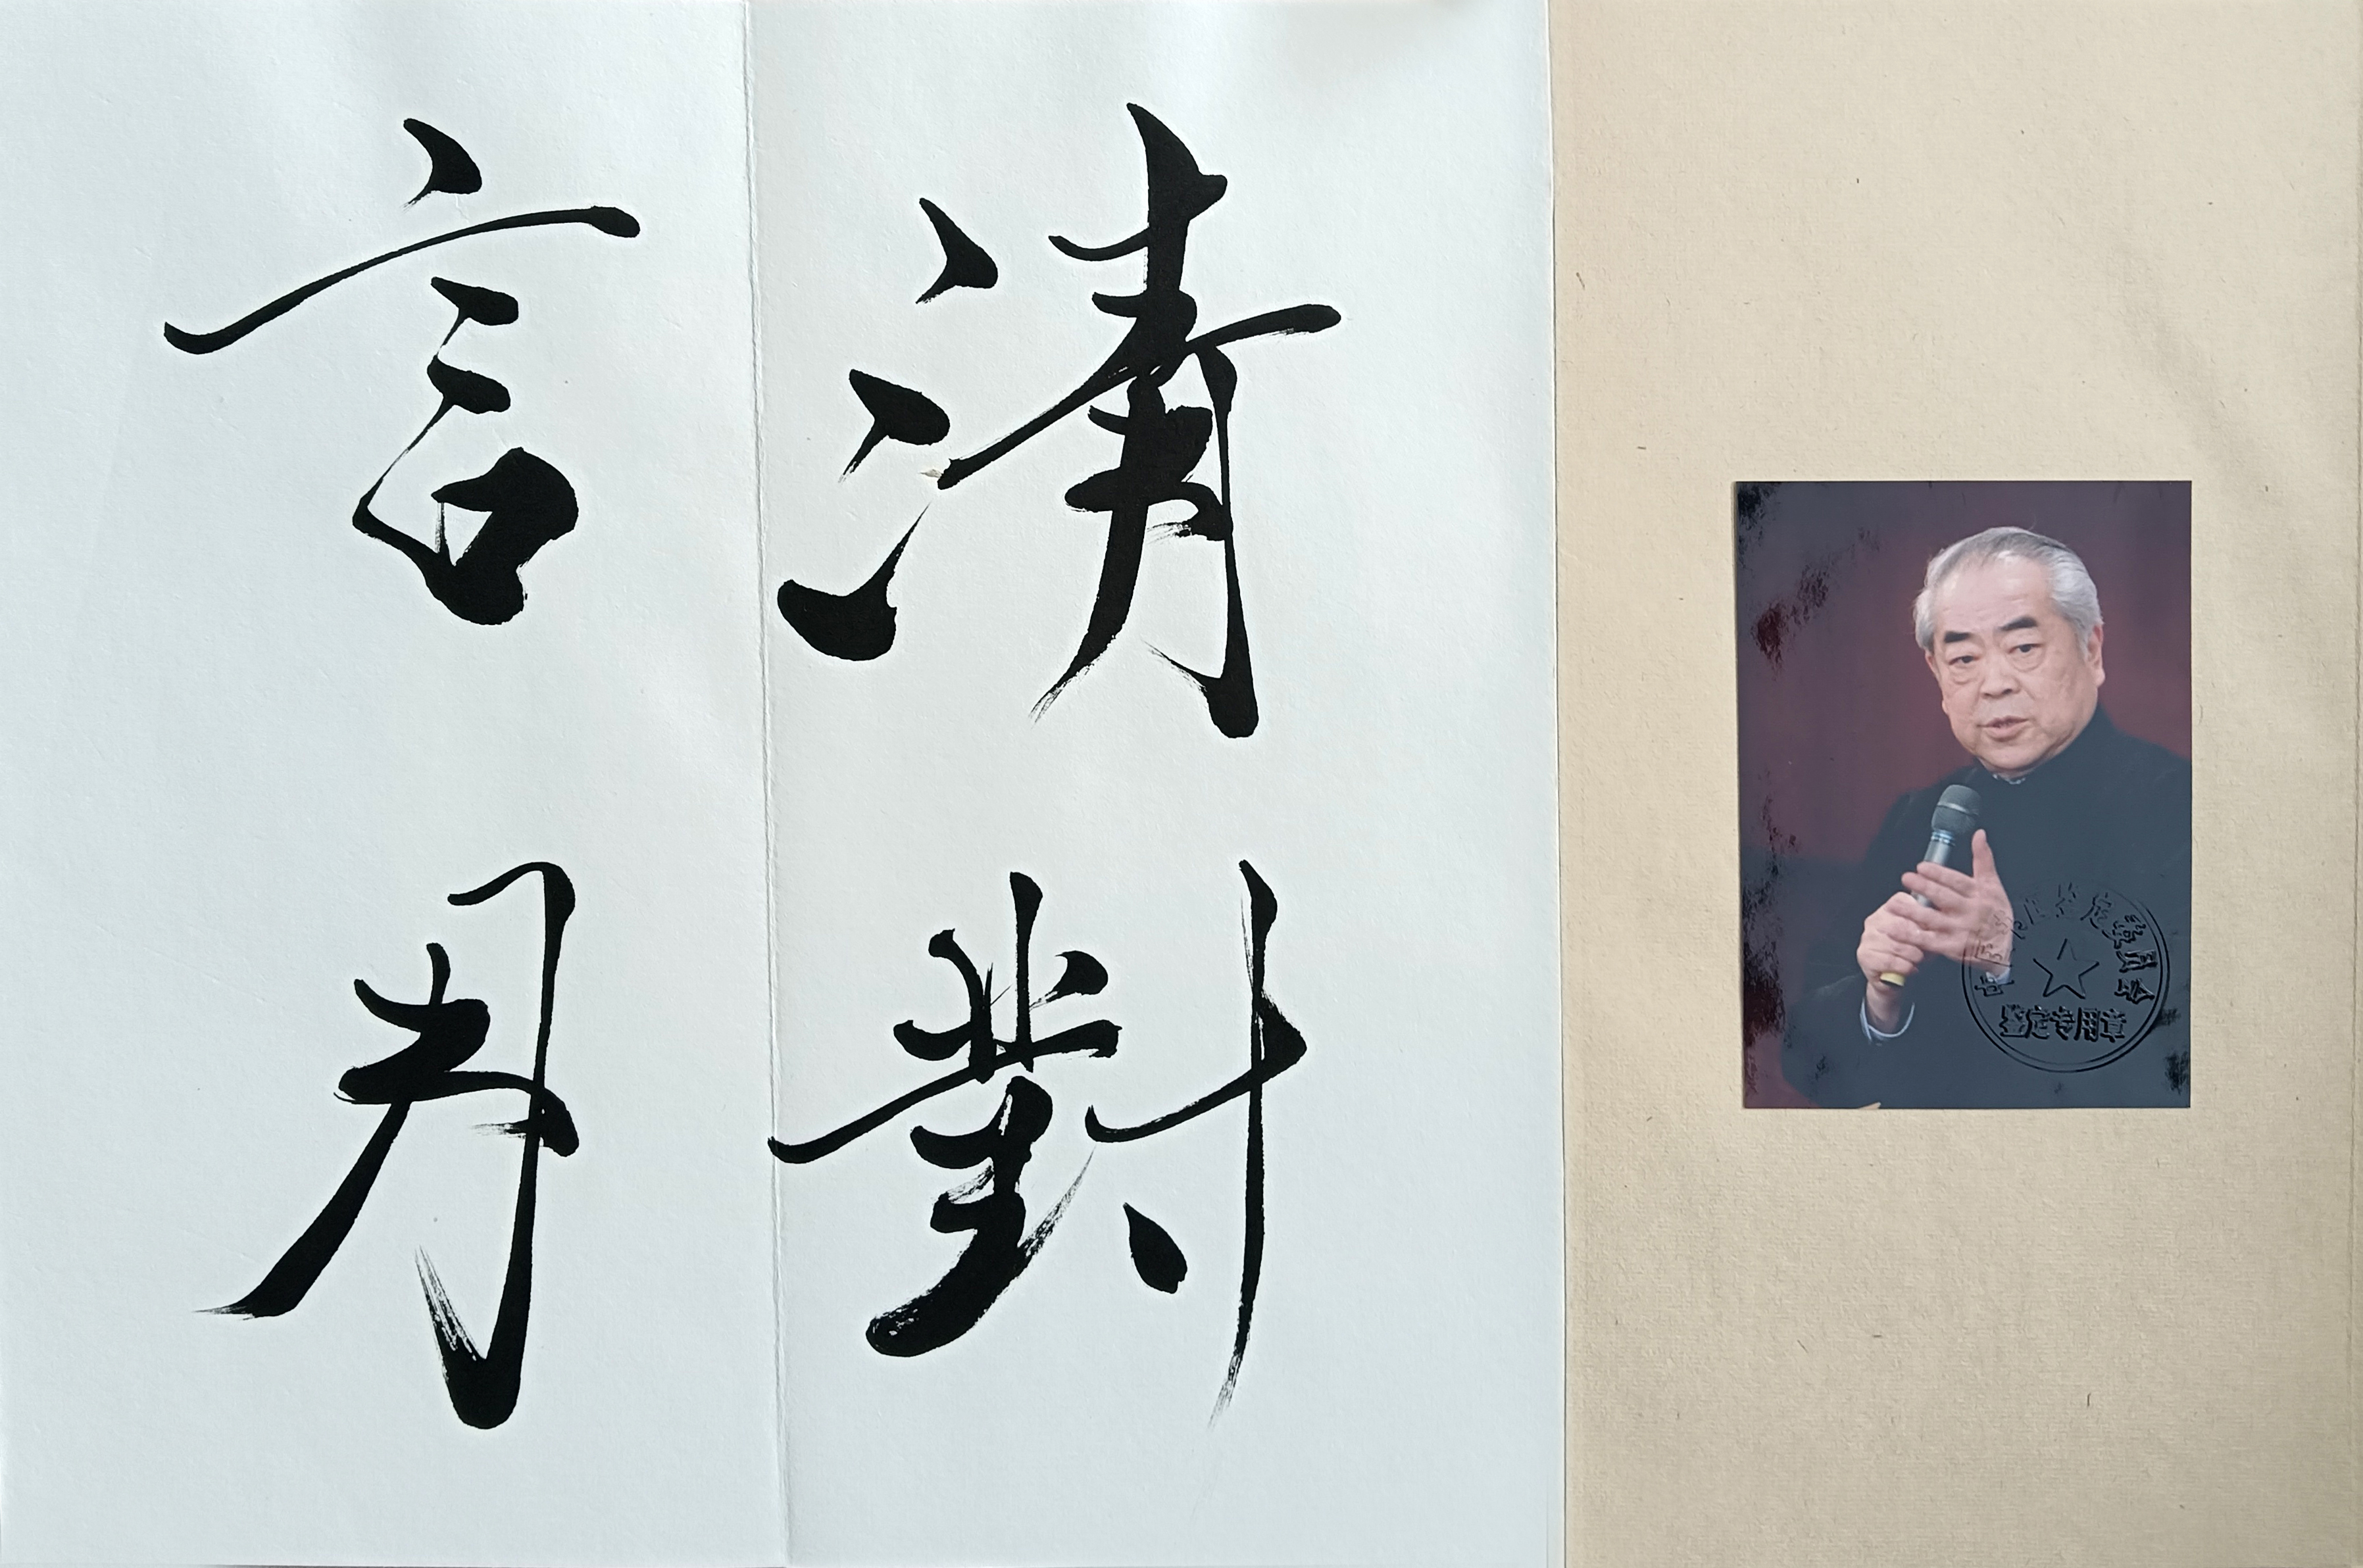 清對
言月
鉴定专用章